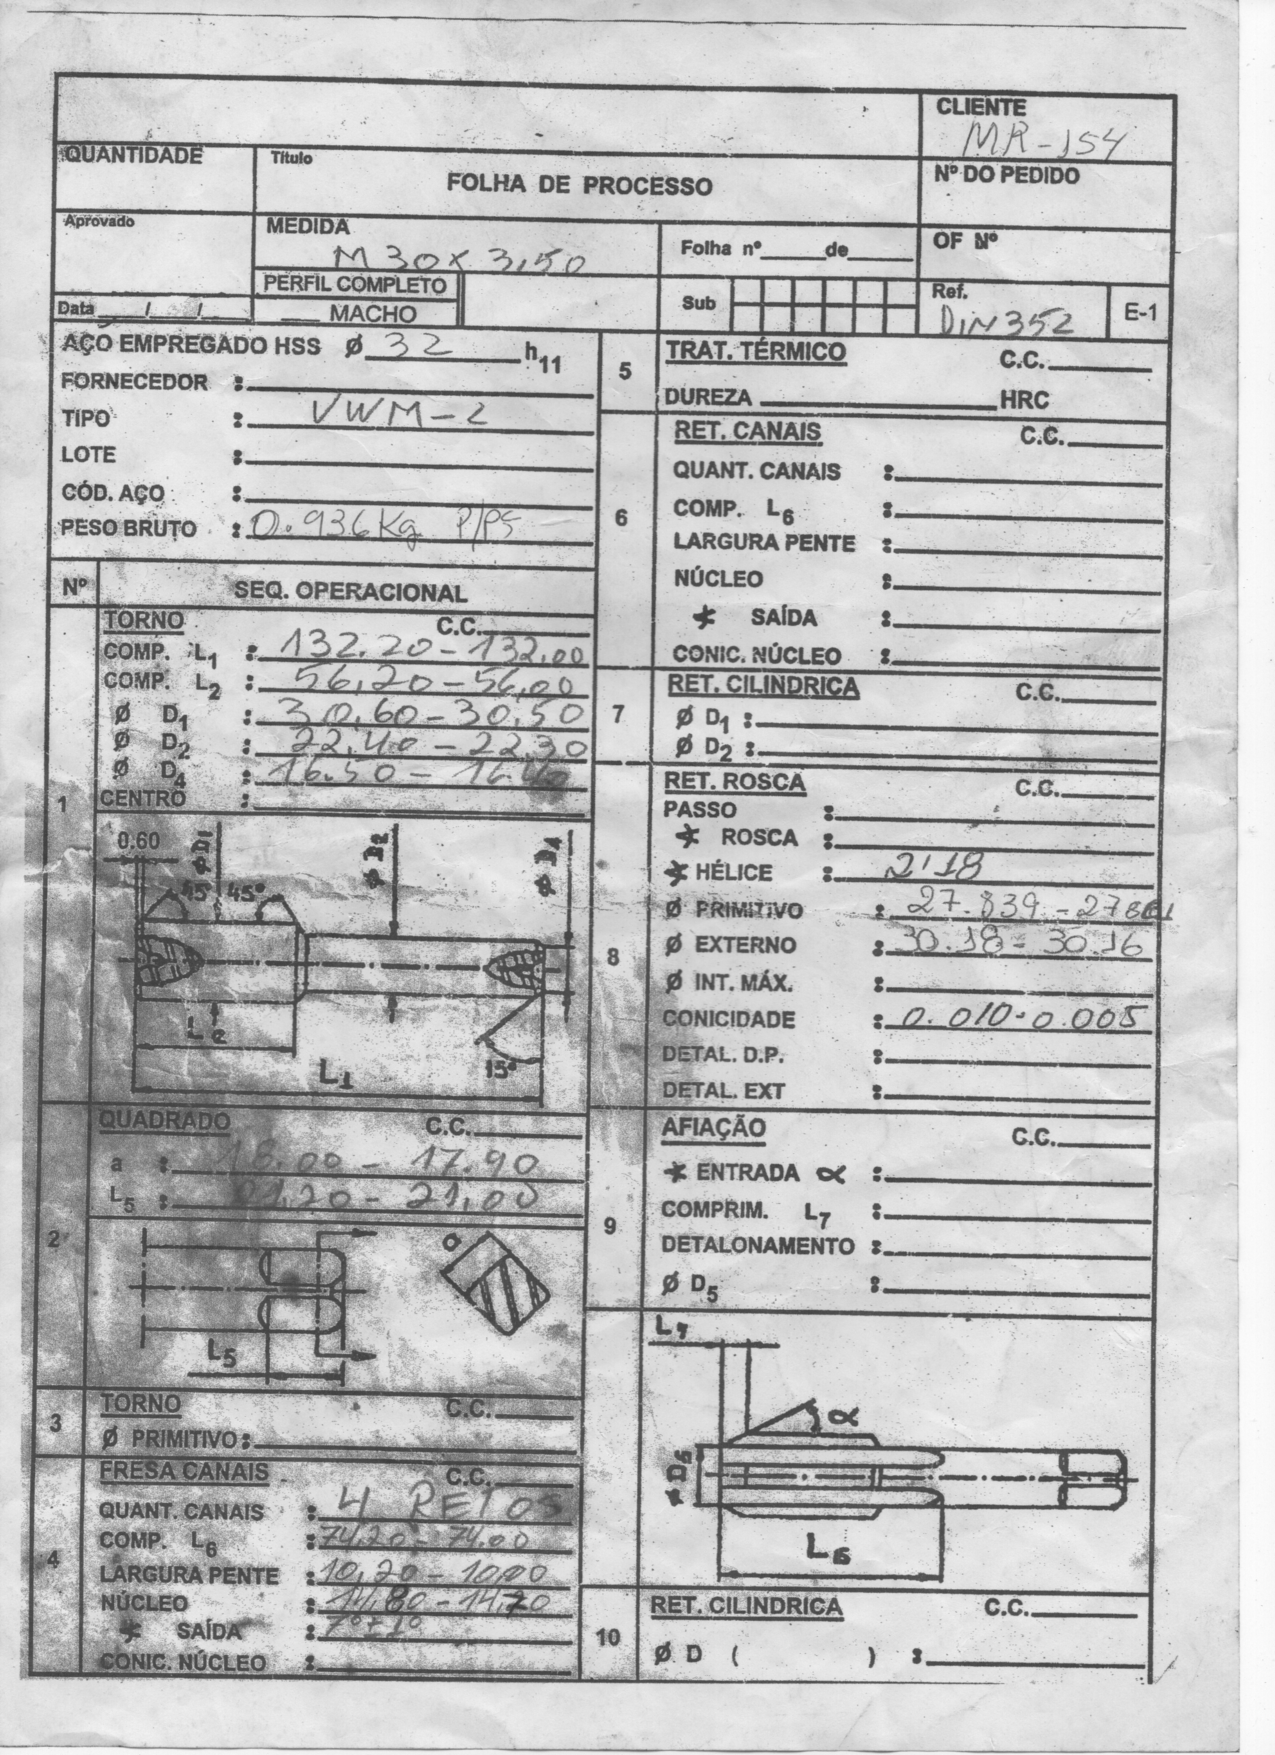 CLIENTE
MR-154
QUANTIDADE
Título
FOLHA DE PROCESSO
Nº DO PEDIDO
Aprovado
MEDIDA
M 30 x 3,50
Folha nº ______ de ______
OF Nº
PERFIL COMPLETO
MACHO
Sub
Ref.
DIN 352
E-1
Data ___/___/___
AÇO EMPREGADO HSS Ø 32 h11
FORNECEDOR :
TIPO : VWM-2
LOTE :
CÓD. AÇO :
PESO BRUTO : 0.936 Kg P/PS
Nº SEQ. OPERACIONAL
1
TORNO C.C.
COMP. L1 : 132.20 - 132,00
COMP. L2 : 56,20 - 56,00
Ø D1 : 30,60 - 30,50
Ø D2 : 22,40 - 22,30
Ø D4 : 16.50 - 16.40
CENTRO :
0.60
Ø D1
Ø D2
Ø D4
45° 45°
L2
L1
15°
2
QUADRADO C.C.
a : 18.00 - 17.90
L5 : 21,20 - 21,00
a
L5
3
TORNO C.C.
Ø PRIMITIVO :
4
FRESA CANAIS C.C.
QUANT. CANAIS : 4 RETOS
COMP. L6 : 74,20 - 74.00
LARGURA PENTE : 10,20 - 10,00
NÚCLEO : 14,80 - 14,70
* SAÍDA : 7° ± 1°
CONIC. NÚCLEO :
5
TRAT. TÉRMICO C.C.
DUREZA ______ HRC
6
RET. CANAIS C.C.
QUANT. CANAIS :
COMP. L6 :
LARGURA PENTE :
NÚCLEO :
* SAÍDA :
CONIC. NÚCLEO :
7
RET. CILINDRICA C.C.
Ø D1 :
Ø D2 :
8
RET. ROSCA C.C.
PASSO :
* ROSCA :
* HÉLICE : 2'18
Ø PRIMITIVO : 27.839 -
Ø EXTERNO : 30.18 - 30.16
Ø INT. MÁX. :
CONICIDADE : 0.010 - 0.005
DETAL. D.P. :
DETAL. EXT :
9
AFIAÇÃO C.C.
* ENTRADA α :
COMPRIM. L7 :
DETALONAMENTO :
Ø D5 :
L7
α
Ø D5
L6
10
RET. CILINDRICA C.C.
Ø D ( ) :